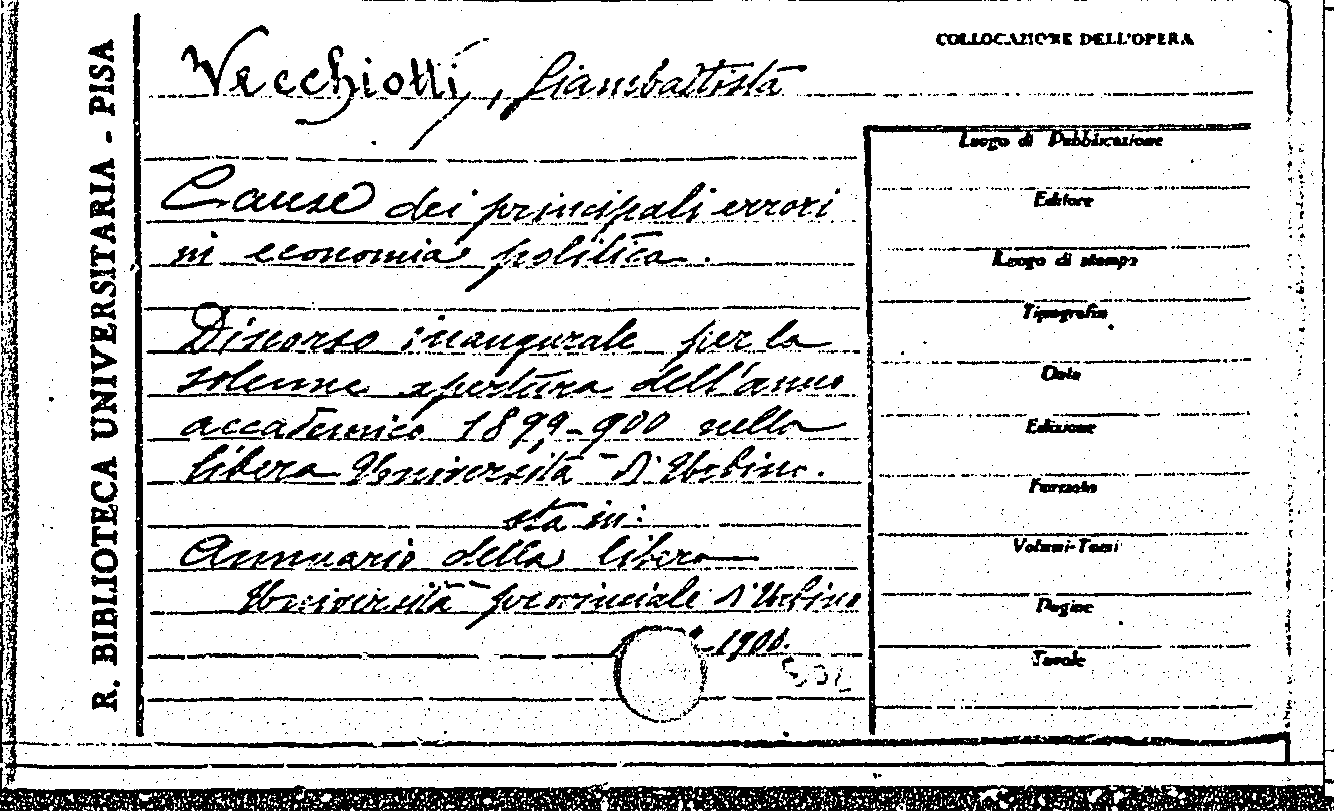 R. BIBLIOTECA UNIVERSITARIA - PISA
Vecchiotti, Giambattista
COLLOCAZIONE DELL'OPERA
Cause dei principali errori
in economia politica.
Discorso inaugurale per la
solenne apertura dell'anno
accademico 1899-900 nella
libera Università d'Urbino.
sta in:
Annuario della libera
Università provinciale d'Urbino
-1900.
Luogo di Pubblicazione
Editore
Luogo di stampa
Tipografia
Data
Edizione
Formato
Volumi-Tomi
Pagine
Tavole